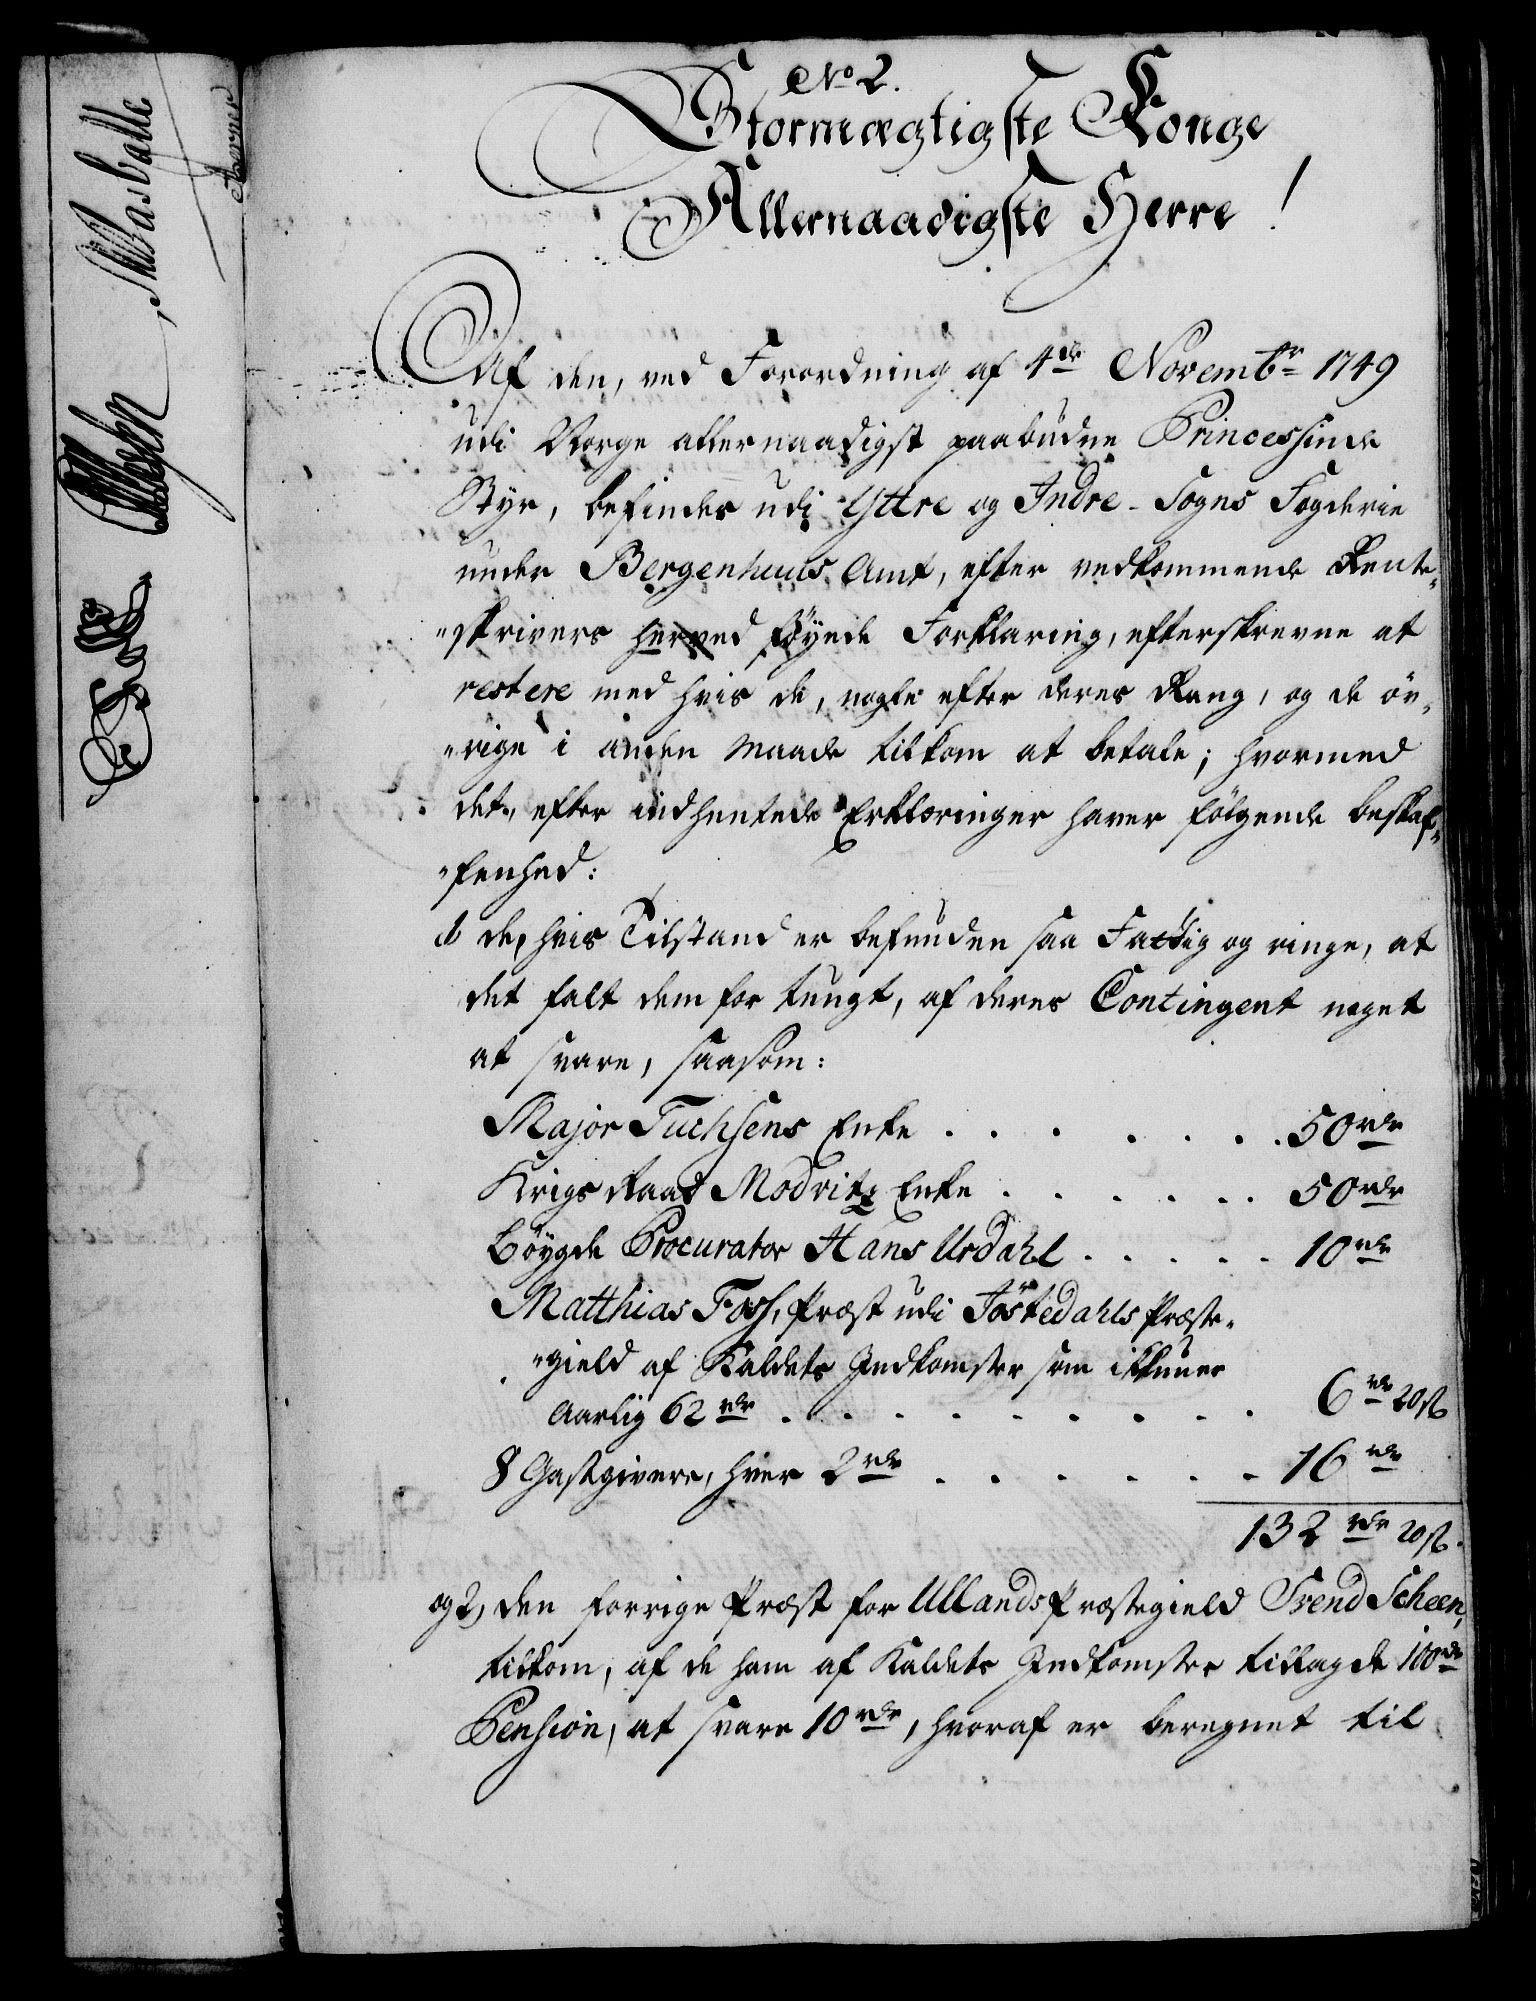 No 2.
Stormægtigste Konge
Allernaadigste Herre!
Af den, ved Forordning af 4de Novembr 1749
udi Norge allernaadigst paabudne Princessinde
Styr, befindes udi Yttre og Indre-Sogns Fogderie
under Bergenhuus Amt, efter vedkommende Rente-
-skrivers herved föyede Forklaring, efterskrevne at
restere med hvis de, nogle efter deres Rang, og de öv-
-rige i anden Maade tilkom at betale; hvormed
det, efter indhentede Erklæringer haver fölgende beskaf-
-fenhed:
1 de, hvis Tilstand er befunden saa Fattig og ringe, at
det falt dem for tungt, af deres Contingent noget
at svare, saasom:
Major Fuchsens Enke . . . . . . . 50 rdr
Krigs Raad Modvitz Enke . . . . . . 50 rdr
Böygde Procurator Hans Urdahl . . . . . 10 rdr
Matthias Foss, Præst udi Jöstedahls Præste-
-gield af Kaldets Indkomster som ikkuns
Aarlig 62 rdr . . . . . . . . . 6 rdr 20 ß
8 Gastgivere, hver 2 rdr . . . . . . 16 rdr
132 rdr 20 ß.
og 2, den forrige Præst for Ullands Præstegield Svend Scheen,
tilkom, af de ham af Kaldets Indkomster tillagde 100 rdr
Pension, at svare 10 rdr, hvoraf er beregnet til